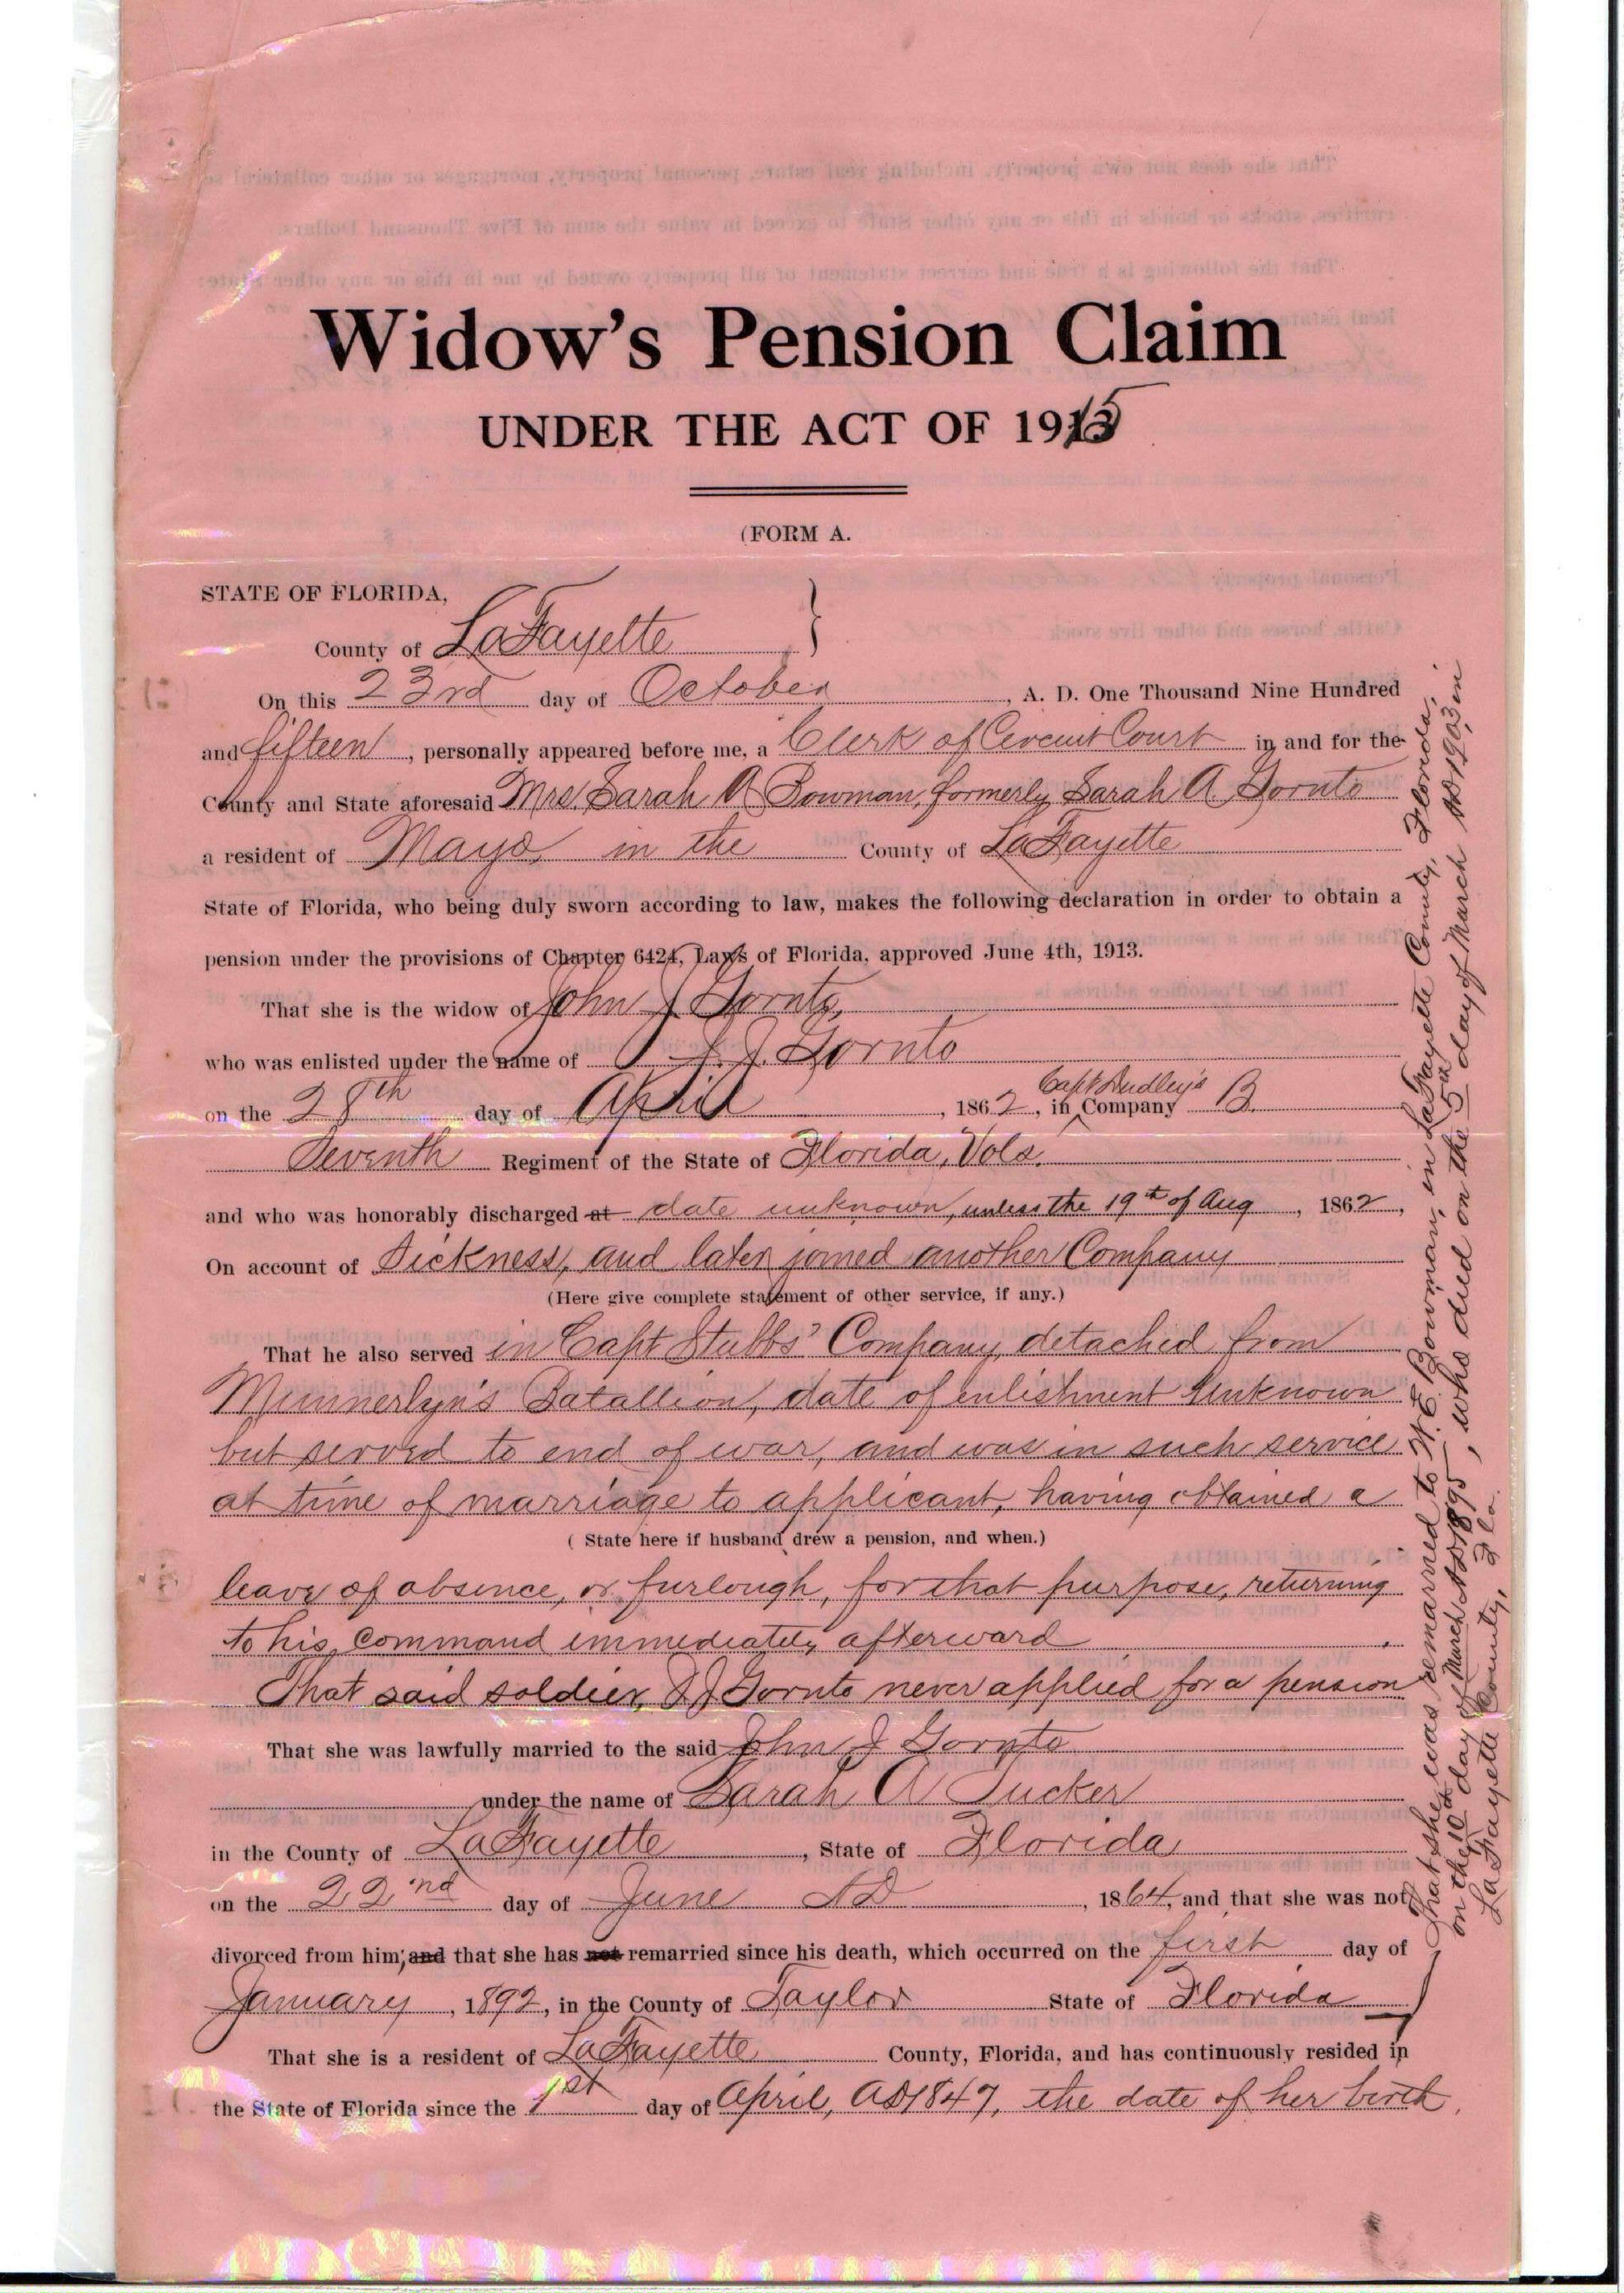 Widow's Pension Claim
UNDER THE ACT OF 1915
(FORM A.
STATE OF FLORIDA,
County of LaFayette }
On this 23rd day of October, A. D. One Thousand Nine Hundred
and fifteen, personally appeared before me, a Clerk of Circuit Court in and for the
County and State aforesaid Mrs. Sarah A Bowman, formerly Sarah A. Gornto
a resident of Mayo in the County of LaFayette
State of Florida, who being duly sworn according to law, makes the following declaration in order to obtain a
pension under the provisions of Chapter 6424, Laws of Florida, approved June 4th, 1913.
That she is the widow of John J Gornto,
who was enlisted under the name of J. J. Gornto
on the 28th day of April, 1862, in Capt Dudley's Company B.
Seventh Regiment of the State of Florida, Vols.
and who was honorably discharged at date unknown, unless the 19th of Aug, 1862,
On account of Sickness, and later joined another Company
(Here give complete statement of other service, if any.)
That he also served in Capt Stubbs' Company, detached from
Munnerlyn's Batallion, date of enlishment unknown
but served to end of war, and was in such service
at time of marriage to applicant, having obtained a
( State here if husband drew a pension, and when.)
leave of absence, or furlough, for that purpose, returning
to his command immediately afterward.
That said soldier, J J Gornto never applied for a pension
That she was lawfully married to the said John J Gornto
under the name of Sarah A Tucker
in the County of LaFayette, State of Florida
on the 22nd day of June AD, 1864, and that she was not
divorced from him; and that she has not remarried since his death, which occurred on the first day of
January, 1892, in the County of Taylor State of Florida
That she is a resident of LaFayette County, Florida, and has continuously resided in
the State of Florida since the 1st day of April, AD 1847, the date of her birth.
That she was remarried to W. E. Bowman, in LaFayette County, Florida,
on the 10th day of March AD 1895, who died on the 5th day of March AD 1903 in
LaFayette County, Fla.